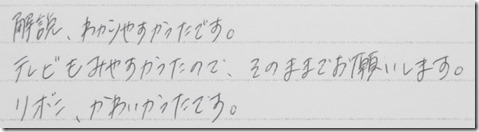 解説、わかりやすかったです。
テレビもみやすかったので、そのままでお願いします。
リボン、かわいかったです。